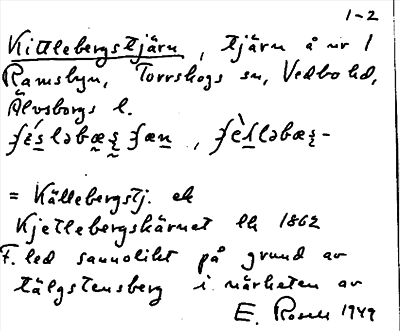 1-2
Kittlebergstjärn, tjärn å nr 1
Ramsbyn, Torrskogs sn, Vedbo hd,
Älvsborgs l.
= Källebergstj. ek
Kjettlebergskärnet lk 1862
F. led sannolikt på grund av
tälgstensberg i närheten av
E. Rosell 1949